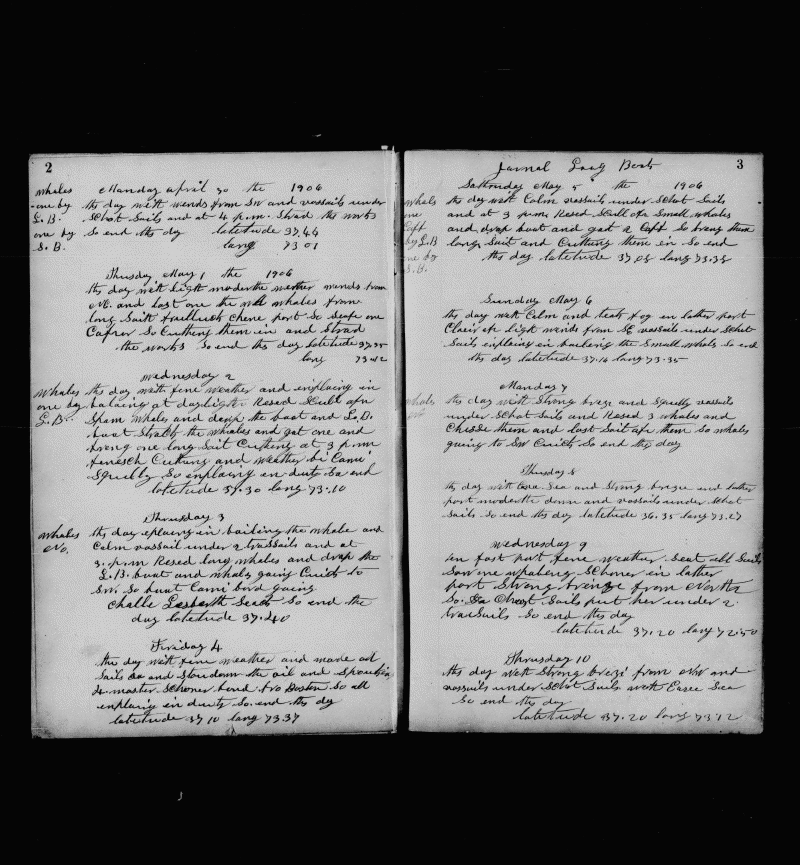 2
Whales
one by
L.B.
one by
S.B.
Monday april 30 the 1906
ths day with wends from SW and vassails under
Schot Sails and at 4 p.m. Strad the works
So end ths day latetude 37.44
lang 73 01
Thusday May 1 the 1906
ths day with light moderthe wether wends from
and last one the whales from
long Saitt
So Cutting them in and Strad
the works So end ths day latetude 37.35
long 73.42
Wednesday 2
Whales
one by
L.B.
ths day with fene weather and enplaying in
at daylight Resed Scull ofn
Spam Whales and drop the boat and L.B.
boat the whales and gat one and
breng one long Sait Cutheng at 3 p.m
Cutting and weather bi Cami
Squelly So enplaying in duts So end
latetude 37.30 lang 73.10
Thrusday 3
Whales
No.
ths day eplaying in bailing the whale and
Calm vassail under 2 trassails and at
3 p.m Resed long whales and drop the
L.B. boat and whales going Quick to
SW. So buat Came bord going
So end the
day latetude 37.40
Friday 4
the day with fene weather and made all
Sails and the oil and
master Schoner bond Boston So all
enplaying in duts So end ths dy
latetude 37 10 lang 73.37
3
Jurnal Laag Bests
Satturday May 5 the 1906
Whals
one
Caft
by L.B
one by
S.B.
ths day with Calm vassails under Schot Sails
and at 3 p.m. Resed Scull of Small whales
and drop boat and gat 2 Caft So breng them
long Sait and Cutheng them in So end
ths day latetude 37.08 lang 73.38
Sunday May 6
ths day with Calm and fog in latter part
light wends from SE vassails under Schot
Sails enplaying in baileng the Small Whals So end
ths day latetude 37.14 lang 73.35
Manday 7
Whales
ths day with Strong breze and Squelly vassails
under Schot Sails and Resed 3 whales and
them and last Sait ofn them So whales
going to SW Quick So end ths day
Thusday 8
ths day with Sea and Strong brezie and latter
part moderthe donn and vassails under Schot
Sails So end ths day latetude 36.35 lang 73.27
Wednesday 9
in fast part fene weather. Seat all Sails
Saw one whaleng Schoner in lather
part Strong from North
So Sails put her under 2
trassails So end ths day
latetude 37.20 lang 72.50
Thrusday 10
ths day with Strong brezi from NW and
vassails under Schot Sails with Sea
So end ths day
latetude 37.20 long 73.12